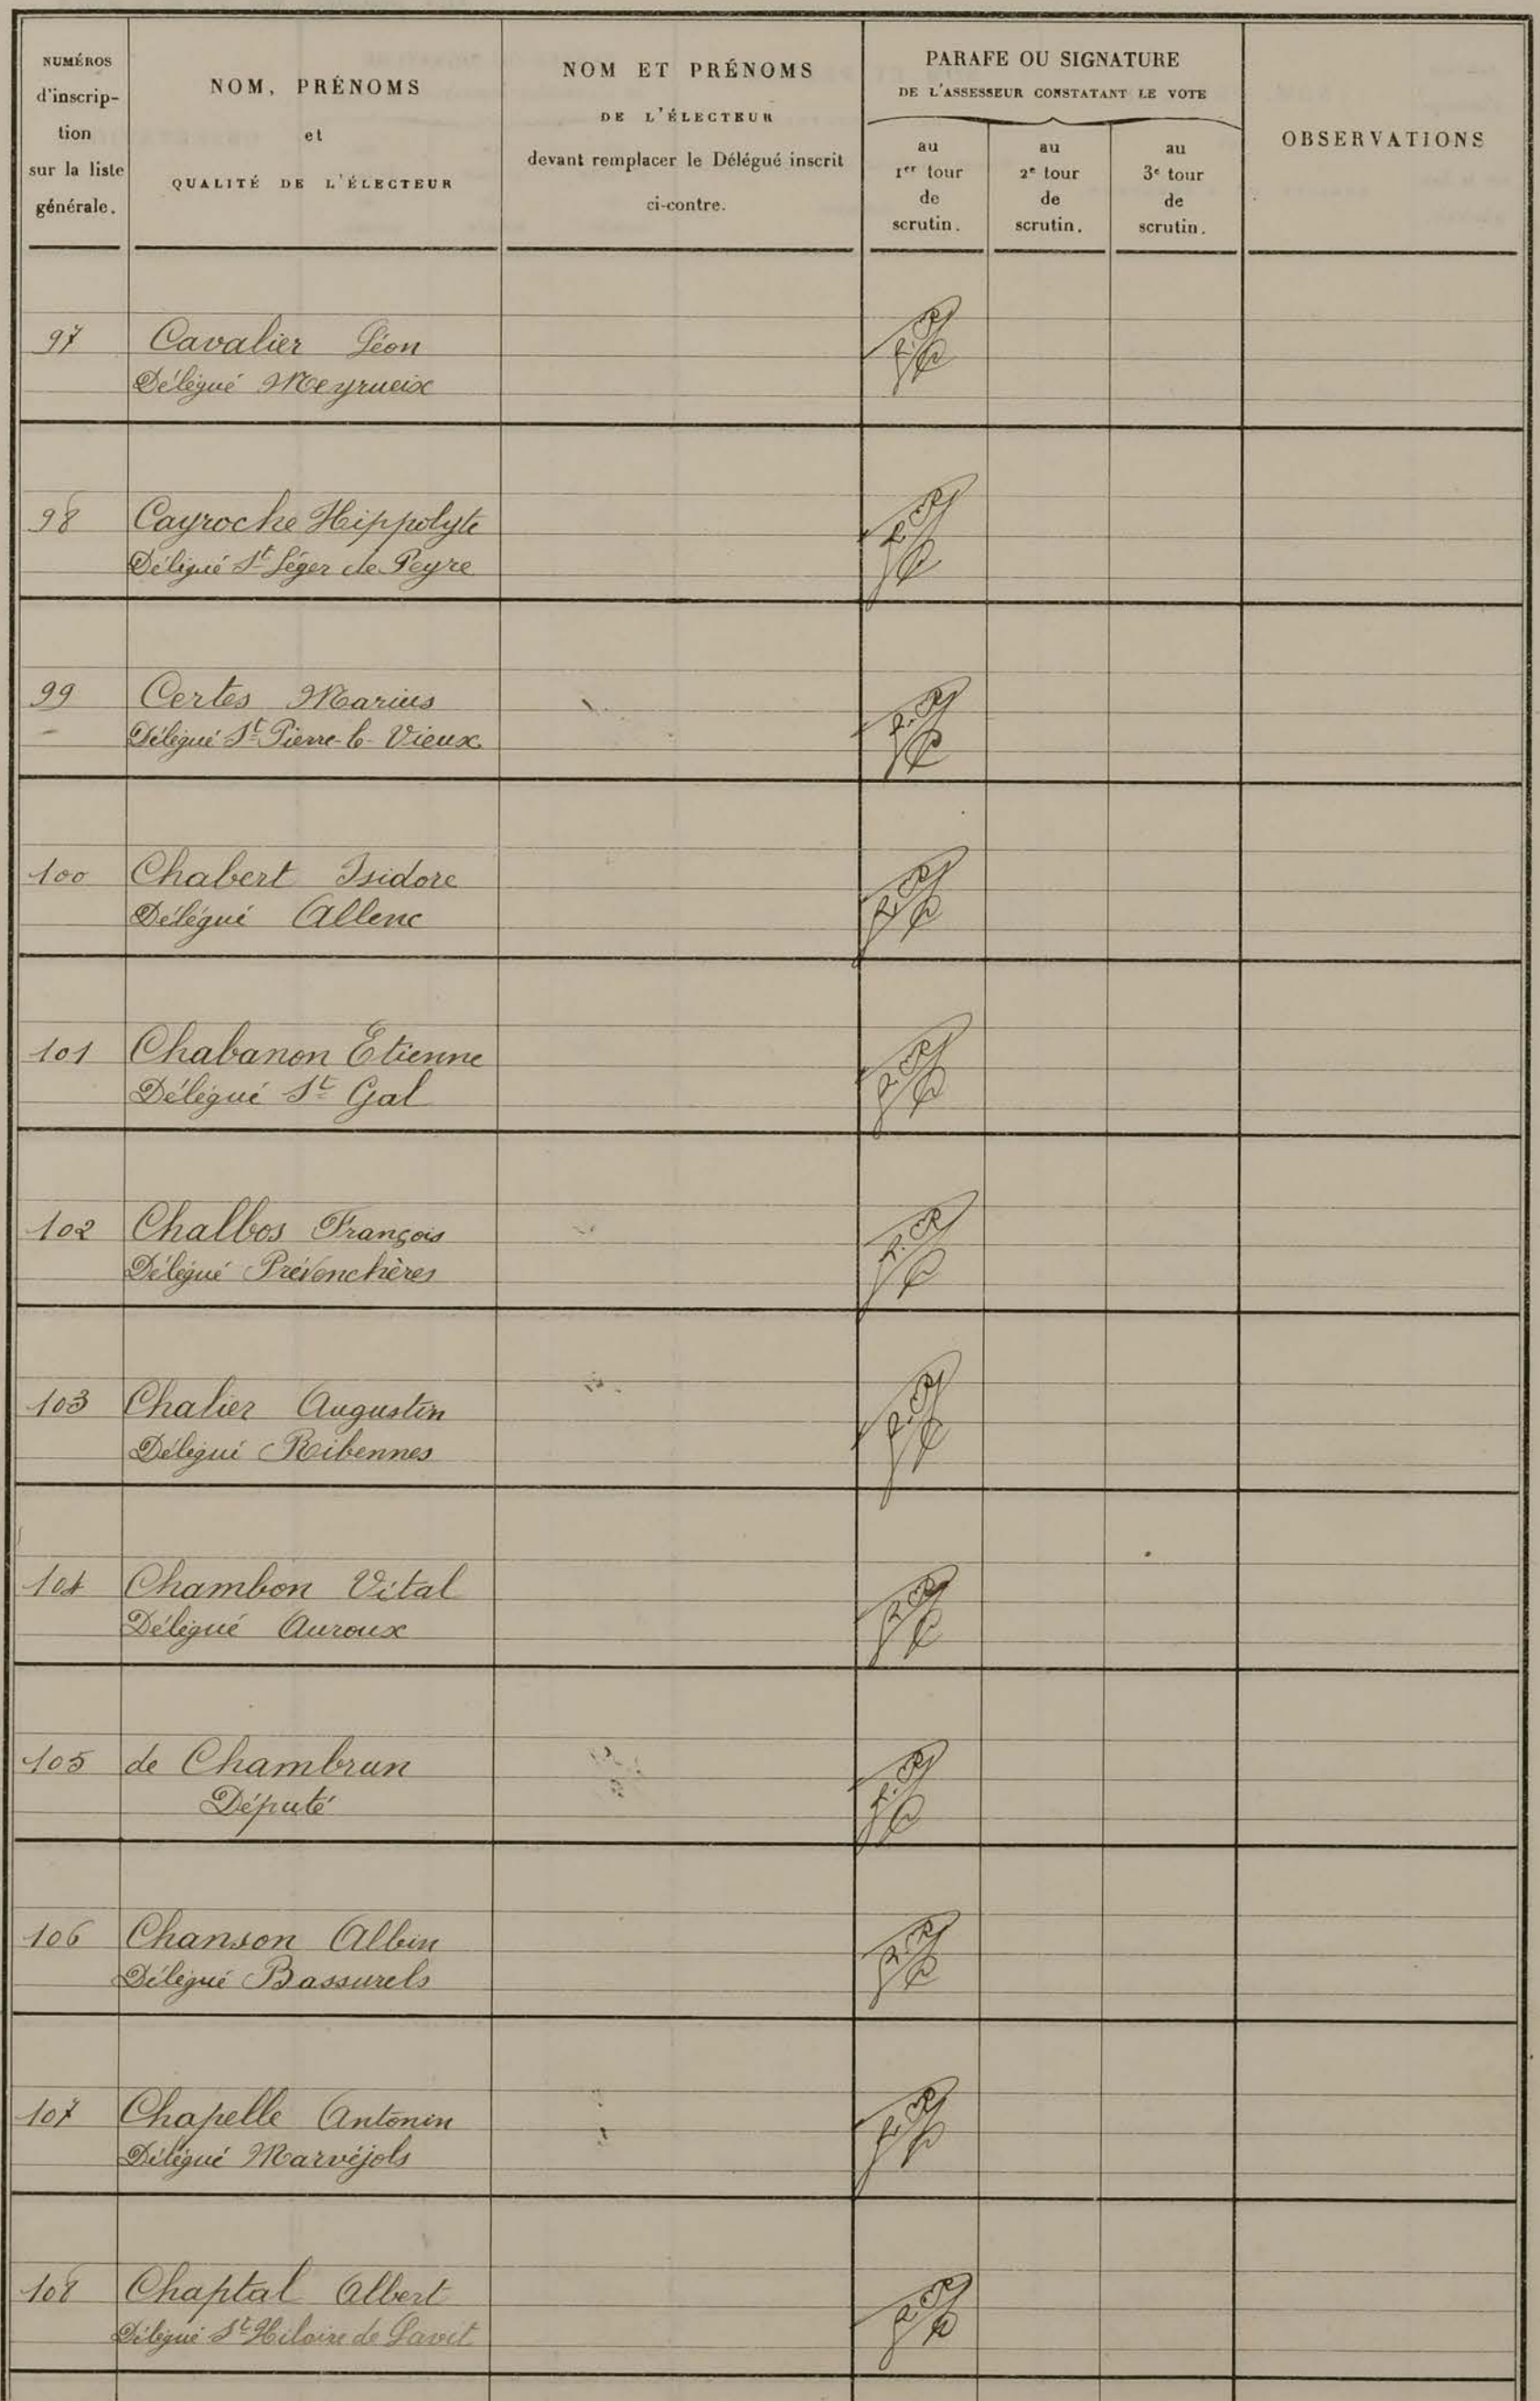 NUMÉROS
d'inscrip-
tion
sur la liste
générale.
NOM, PRÉNOMS
et
QUALITÉ DE L'ÉLECTEUR
NOM ET PRÉNOMS
DE L'ÉLECTEUR
devant remplacer le Délégué inscrit
ci-contre.
PARAFE OU SIGNATURE
DE L'ASSESSEUR CONSTATANT LE VOTE
au
1er tour
de
scrutin.
au
2e tour
de
scrutin.
au
3e tour
de
scrutin.
OBSERVATIONS
97 Cavalier Léon
Délégué Meyrueix
98 Cayroche Hippolyte
Délégué St Léger de Peyre
99 Certes Marius
Délégué St Pierre-le-Vieux
100 Chabert Isidore
Délégué Allenc
101 Chabanon Etienne
Délégué St Gal
102 Chalbos François
Délégué Prévenchères
103 Chalier Augustin
Délégué Ribennes
104 Chambon Vital
Délégué Auroux
105 de Chambrun
Député
106 Chanson Albin
Délégué Bassurels
107 Chapelle Antonin
Délégué Marvéjols
108 Chaptal Albert
Délégué St Hilaire de Lavit